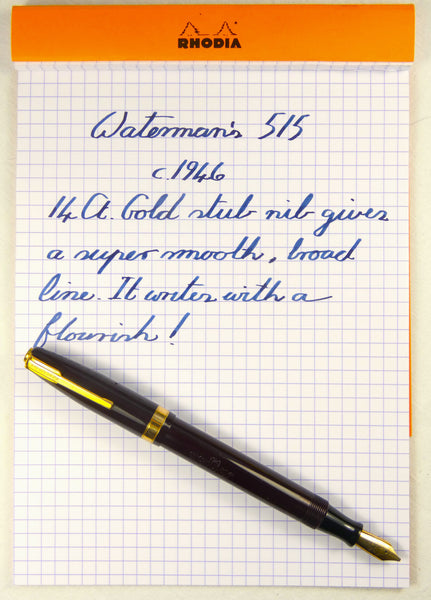 RHODIA
Waterman's 515
c.1946
14 Ct. Gold stub nib gives
a super smooth, broad
line. It writes with a
flourish!